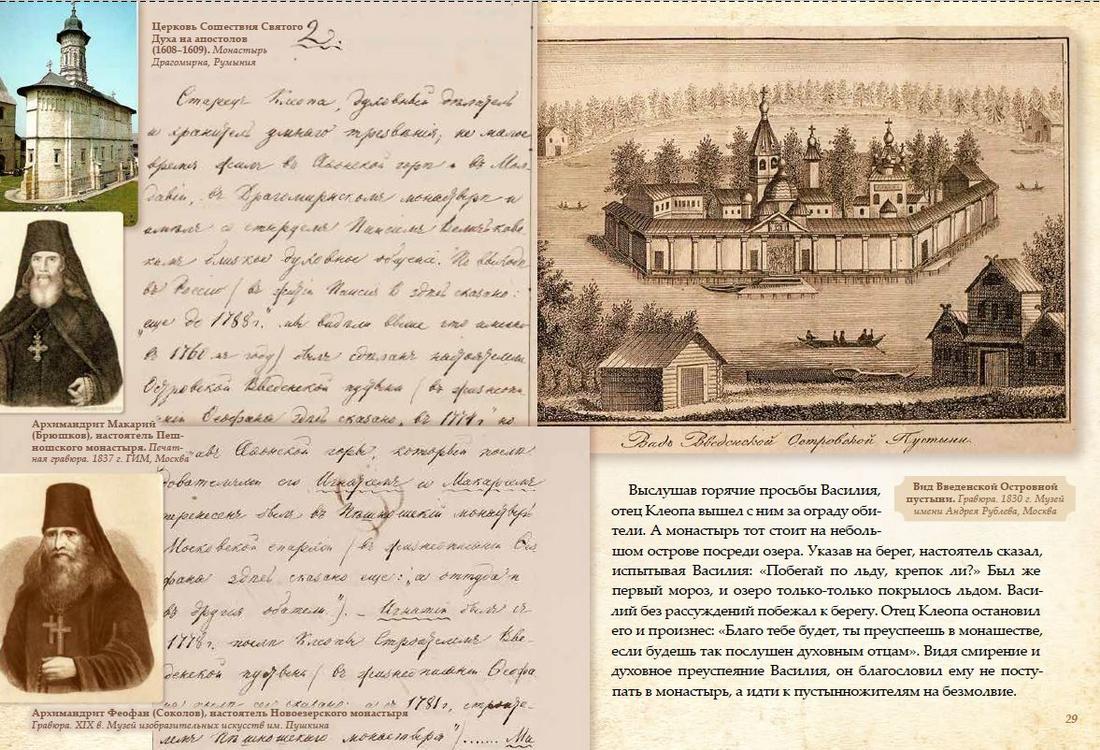 Церковь Сошествия Святого
Духа на апостолов
(1608–1609). Монастырь
Драгомирна, Румыния
2.
Старец Клеопа, духовный делатель
и хранитель умнаго трезвения, не мало
время жил въ Афонской горе и въ Мол-
давии, въ Драгомирнскомъ монастыре и
имелъ съ старцемъ Паисиемъ Величковс-
кимъ близкое духовное общение. По выходе
въ Россию (въ житіи Паисия В. здесь сказано:
"еще до 1788 г."
въ 1760 году) былъ сделанъ настоятелем
Островской Введенской пустыни (въ
Феофана здесь сказано, въ 1774 г. по
Архимандрит Макарий
(Брюшков), настоятель Пеш-
ношского монастыря. Печат-
ная гравюра. 1837 г. ГИМ, Москва
Афонской горы, который после
его Игнатием и Макариемъ
перенесенъ былъ въ Пешношский монастырь
Московской епархии (въ
здесь сказано еще: "а оттуда и
въ другия обители."). – Игнатий былъ съ
1778 г. после Клеопы Строителемъ Вве-
денской пустыни (въ
сказано: съ 1781 г. строите-
лемъ Пешношскаго монастыря)...... Ма
Архимандрит Феофан (Соколов), настоятель Новоезерского монастыря
Гравюра. XIX в. Музей изобразительных искусств им. Пушкина
Видъ Введенской Островской Пустыни.
Вид Введенской Островной
пустыни. Гравюра. 1830 г. Музей
имени Андрея Рублева, Москва
Выслушав горячие просьбы Василия,
отец Клеопа вышел с ним за ограду оби-
тели. А монастырь тот стоит на неболь-
шом острове посреди озера. Указав на берег, настоятель сказал,
испытывая Василия: «Побегай по льду, крепок ли?» Был же
первый мороз, и озеро только-только покрылось льдом. Васи-
лий без рассуждений побежал к берегу. Отец Клеопа остановил
его и произнес: «Благо тебе будет, ты преуспеешь в монашестве,
если будешь так послушен духовным отцам». Видя смирение и
духовное преуспеяние Василия, он благословил ему не посту-
пать в монастырь, а идти к пустынножителям на безмолвие.
29